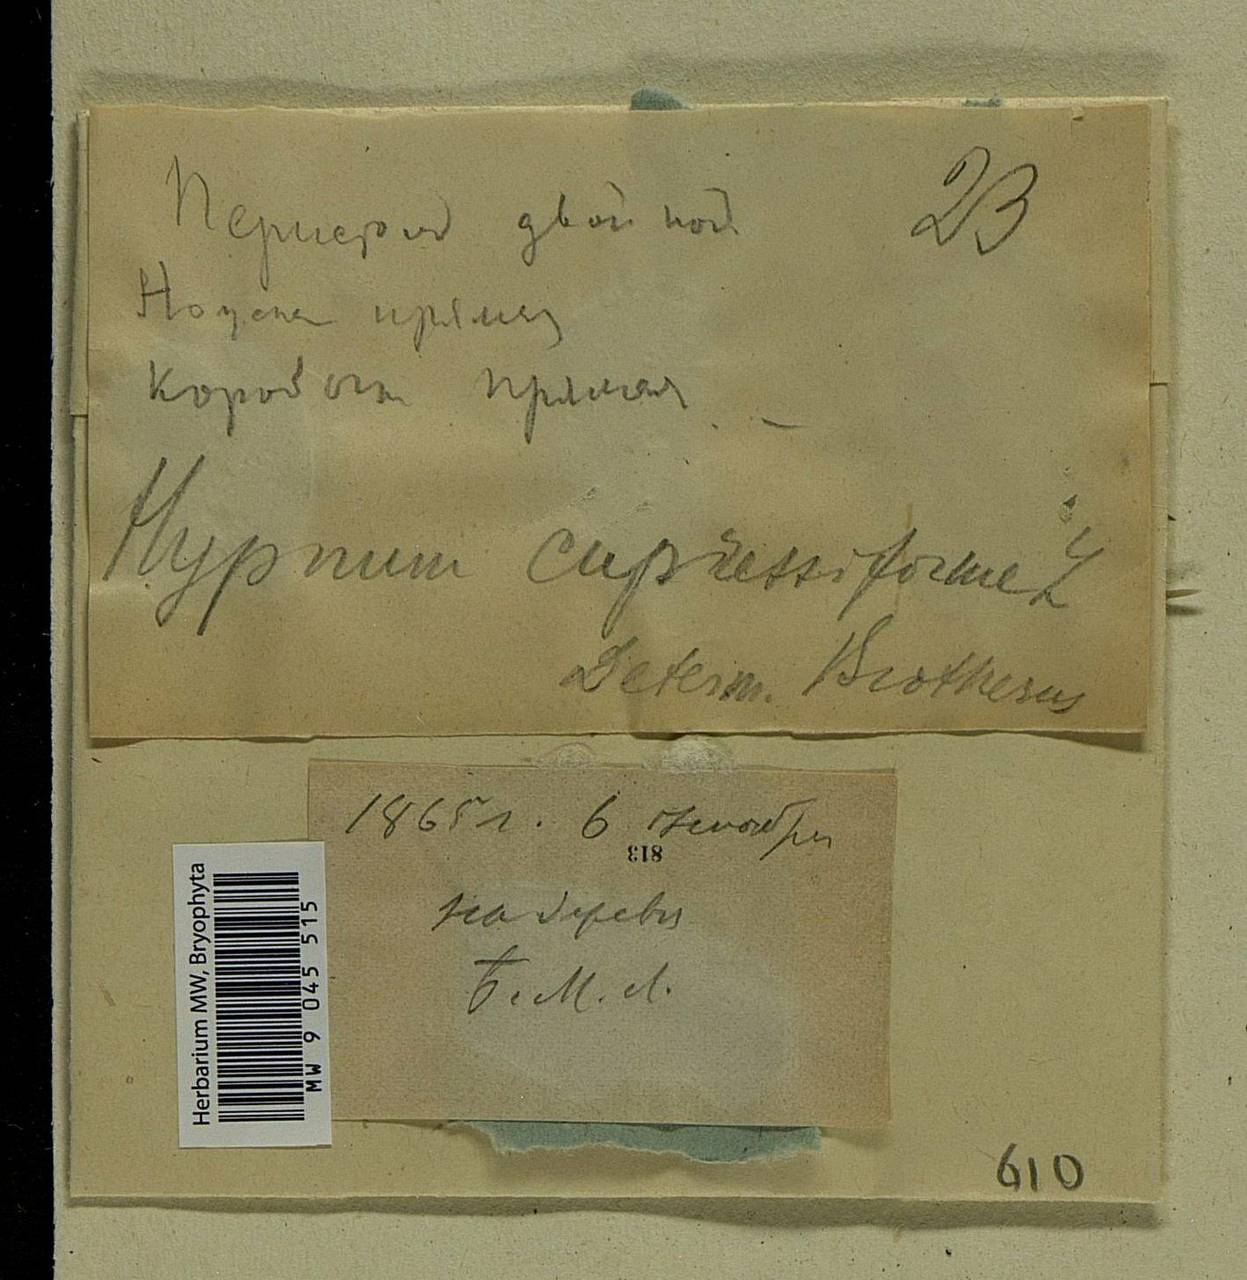 Перистом двойной 23
Ножка прямая
Коробочка прямая
Hypnum cupressiforme L
Determ. Brotherus
1865 г. 6
813
на дереве
Б. М. Л.
Herbarium MW, Bryophyta
MW 9 045 515
610